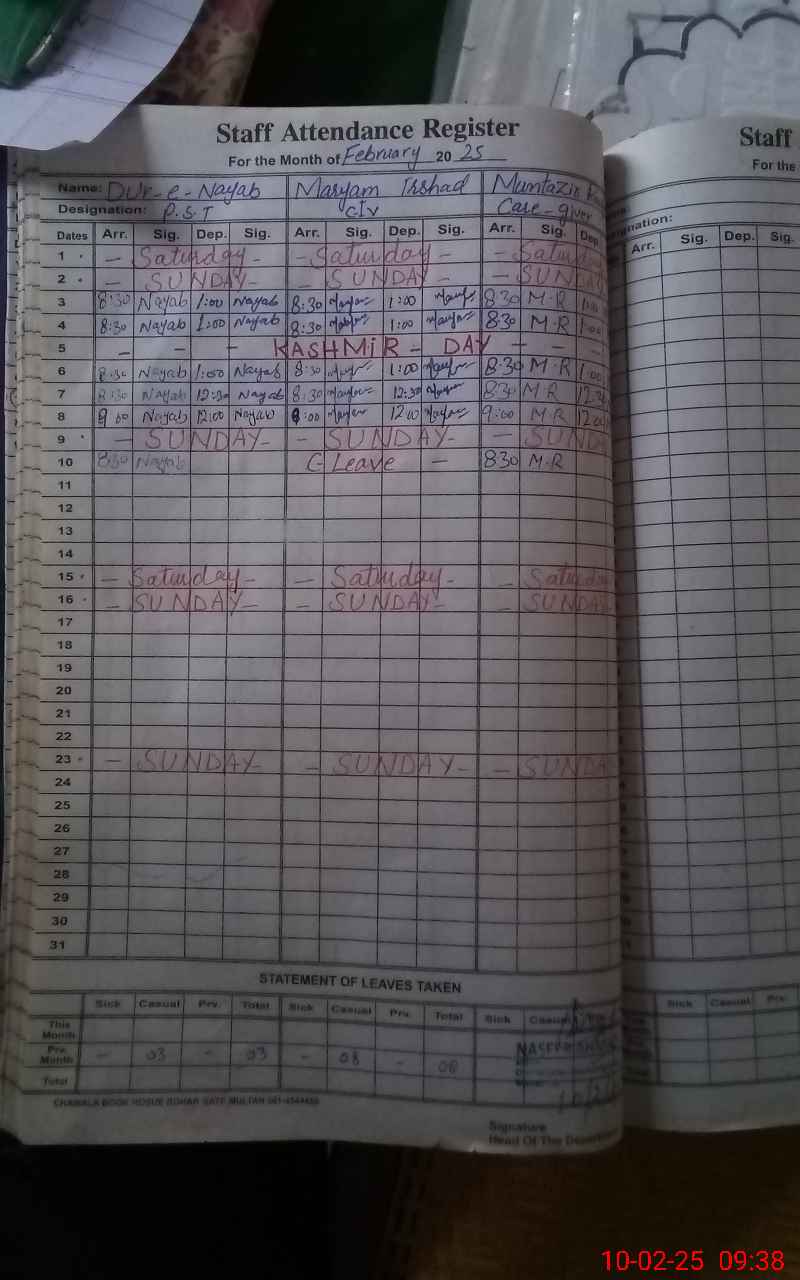 Staff Attendance Register
For the Month of February 20 25
Name: Dur-e-Nayab Maryam Irshad Mumtazin
Designation: P.S.T CIV Care-giver
Dates Arr. Sig. Dep. Sig. Arr. Sig. Dep. Sig. Arr. Sig. Dep.
1 - Saturday - - Saturday - - Saturday
2 - SUNDAY - - SUNDAY - - SUNDAY
3 8:30 Nayab 1:00 Nayab 8:30 1:00 8:30 M.R 1:00
4 8:30 Nayab 1:00 Nayab 8:30 1:00 8:30 M.R 1:00
5 - - - KASHMIR - DAY - - -
6 8:30 Nayab 1:00 Nayab 8:30 1:00 8:30 M.R 1:00
7 8:30 Nayab 12:30 Nayab 8:30 12:30 8:30 M.R 12:30
8 9:00 Nayab 12:00 Nayab 9:00 12:00 9:00 M.R 12:00
9 - SUNDAY - - SUNDAY - - SUNDAY
10 8:30 Nayab C-Leave - 830 M.R
11
12
13
14
15 - Saturday - - Saturday - - Saturday
16 - SUNDAY - - SUNDAY - - SUNDAY
17
18
19
20
21
22
23 - SUNDAY - - SUNDAY - - SUNDAY
24
25
26
27
28
29
30
31
STATEMENT OF LEAVES TAKEN
Sick Casual Prv. Total Sick Casual Prv. Total Sick Casual
This Month
Pre. Month - 03 - 03 - 08 - 08
Total
CHAWALA BOOK HOUSE BOHAR GATE MULTAN
Signature
Head Of The Department
Staff
For the
Designation:
Arr. Sig. Dep. Sig.
Sick Casual Prv.
10-02-25 09:38